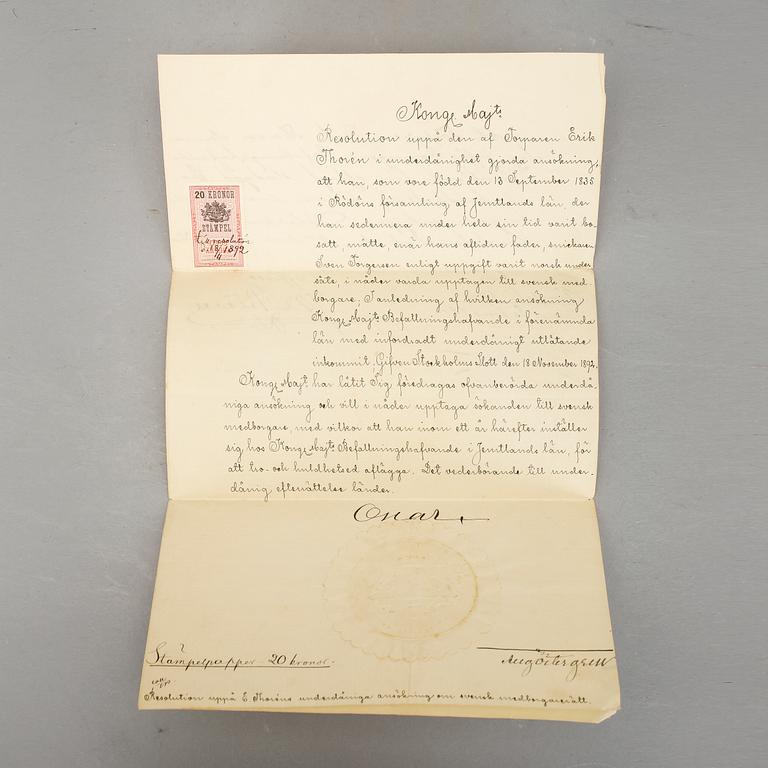 Kongl Majts
Resolution uppå den af Torparen Erik
Thorén i underdånighet gjorda ansökning,
att han, som vore född den 13 September 1835
i Rödöns församling af Jemtlands län, der
han sedermera under hela sin tid varit bo-
satt, måtte, enär hans aflidne fader, smickaren
Sven Torgersen enligt uppgift varit norsk under
såte, i nåder varda upptagen till svensk med-
borgare; I anledning af hvilken ansökning
Kongl Majts Befallningshafvande i förenämnda
län med infordradt underdånigt utlåtande
inkommit; Gifven Stockholms Slott den 18 November 1892.
Kongl Majt har låtit Sig föredragas ofvanberörda underdå-
niga ansökning och vill i nåder upptaga sökanden till svensk
medborgare, med vilkor att han inom ett år härefter inställer
sig hos Kongl Majts Befallningshafvande i Jemtlands län, för
att tro- och huldhetsed aflägga. Det vederbörande till under-
dånig efterrättelse länder.
Oscar
20 KRONOR
STÄMPEL
till resolution
18/11 1892
Stämpelpapper 20 kronor.
Aug Östergren
Resolution uppå E. Thoréns underdåniga ansökning om svensk medborgarerätt.